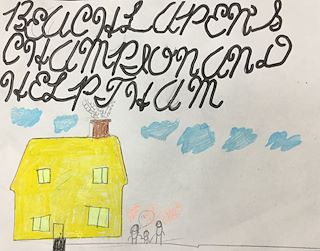 BEACHLAPENS
CHAMPION AND
HELP THAM